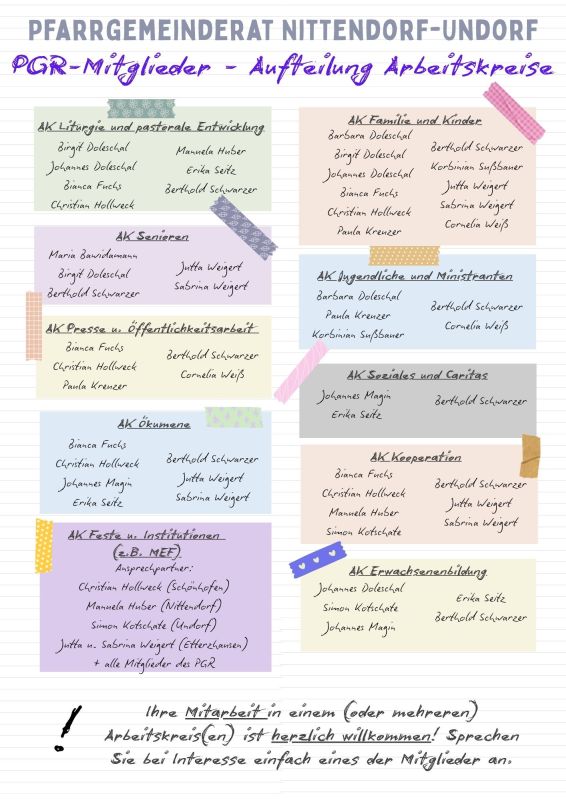 PFARRGEMEINDERAT NITTENDORF-UNDORF
PGR-Mitglieder - Aufteilung Arbeitskreise
AK Liturgie und pastorale Entwicklung
Birgit Doleschal
Johannes Doleschal
Bianca Fuchs
Christian Hollweck
Manuela Huber
Erika Seitz
Berthold Schwarzer
AK Familie und Kinder
Barbara Doleschal
Birgit Doleschal
Johannes Doleschal
Bianca Fuchs
Christian Hollweck
Paula Krenzer
Berthold Schwarzer
Korbinian Sußbauer
Jutta Weigert
Sabrina Weigert
Cornelia Weiß
AK Senioren
Maria Bawidamann
Birgit Doleschal
Berthold Schwarzer
Jutta Weigert
Sabrina Weigert
AK Jugendliche und Ministranten
Barbara Doleschal
Paula Krenzer
Korbinian Sußbauer
Berthold Schwarzer
Cornelia Weiß
AK Presse u. Öffentlichkeitsarbeit
Bianca Fuchs
Christian Hollweck
Paula Krenzer
Berthold Schwarzer
Cornelia Weiß
AK Soziales und Caritas
Johannes Magin
Erika Seitz
Berthold Schwarzer
AK Ökumene
Bianca Fuchs
Christian Hollweck
Johannes Magin
Erika Seitz
Berthold Schwarzer
Jutta Weigert
Sabrina Weigert
AK Kooperation
Bianca Fuchs
Christian Hollweck
Manuela Huber
Simon Kotschate
Berthold Schwarzer
Jutta Weigert
Sabrina Weigert
AK Feste u. Institutionen
(z.B. MEF)
Ansprechpartner:
Christian Hollweck (Schönhofen)
Manuela Huber (Nittendorf)
Simon Kotschate (Undorf)
Jutta u. Sabrina Weigert (Etterzhausen)
+ alle Mitglieder des PGR
AK Erwachsenenbildung
Johannes Doleschal
Simon Kotschate
Johannes Magin
Erika Seitz
Berthold Schwarzer
! Ihre Mitarbeit in einem (oder mehreren)
Arbeitskreis(en) ist herzlich willkommen! Sprechen
Sie bei Interesse einfach eines der Mitglieder an.